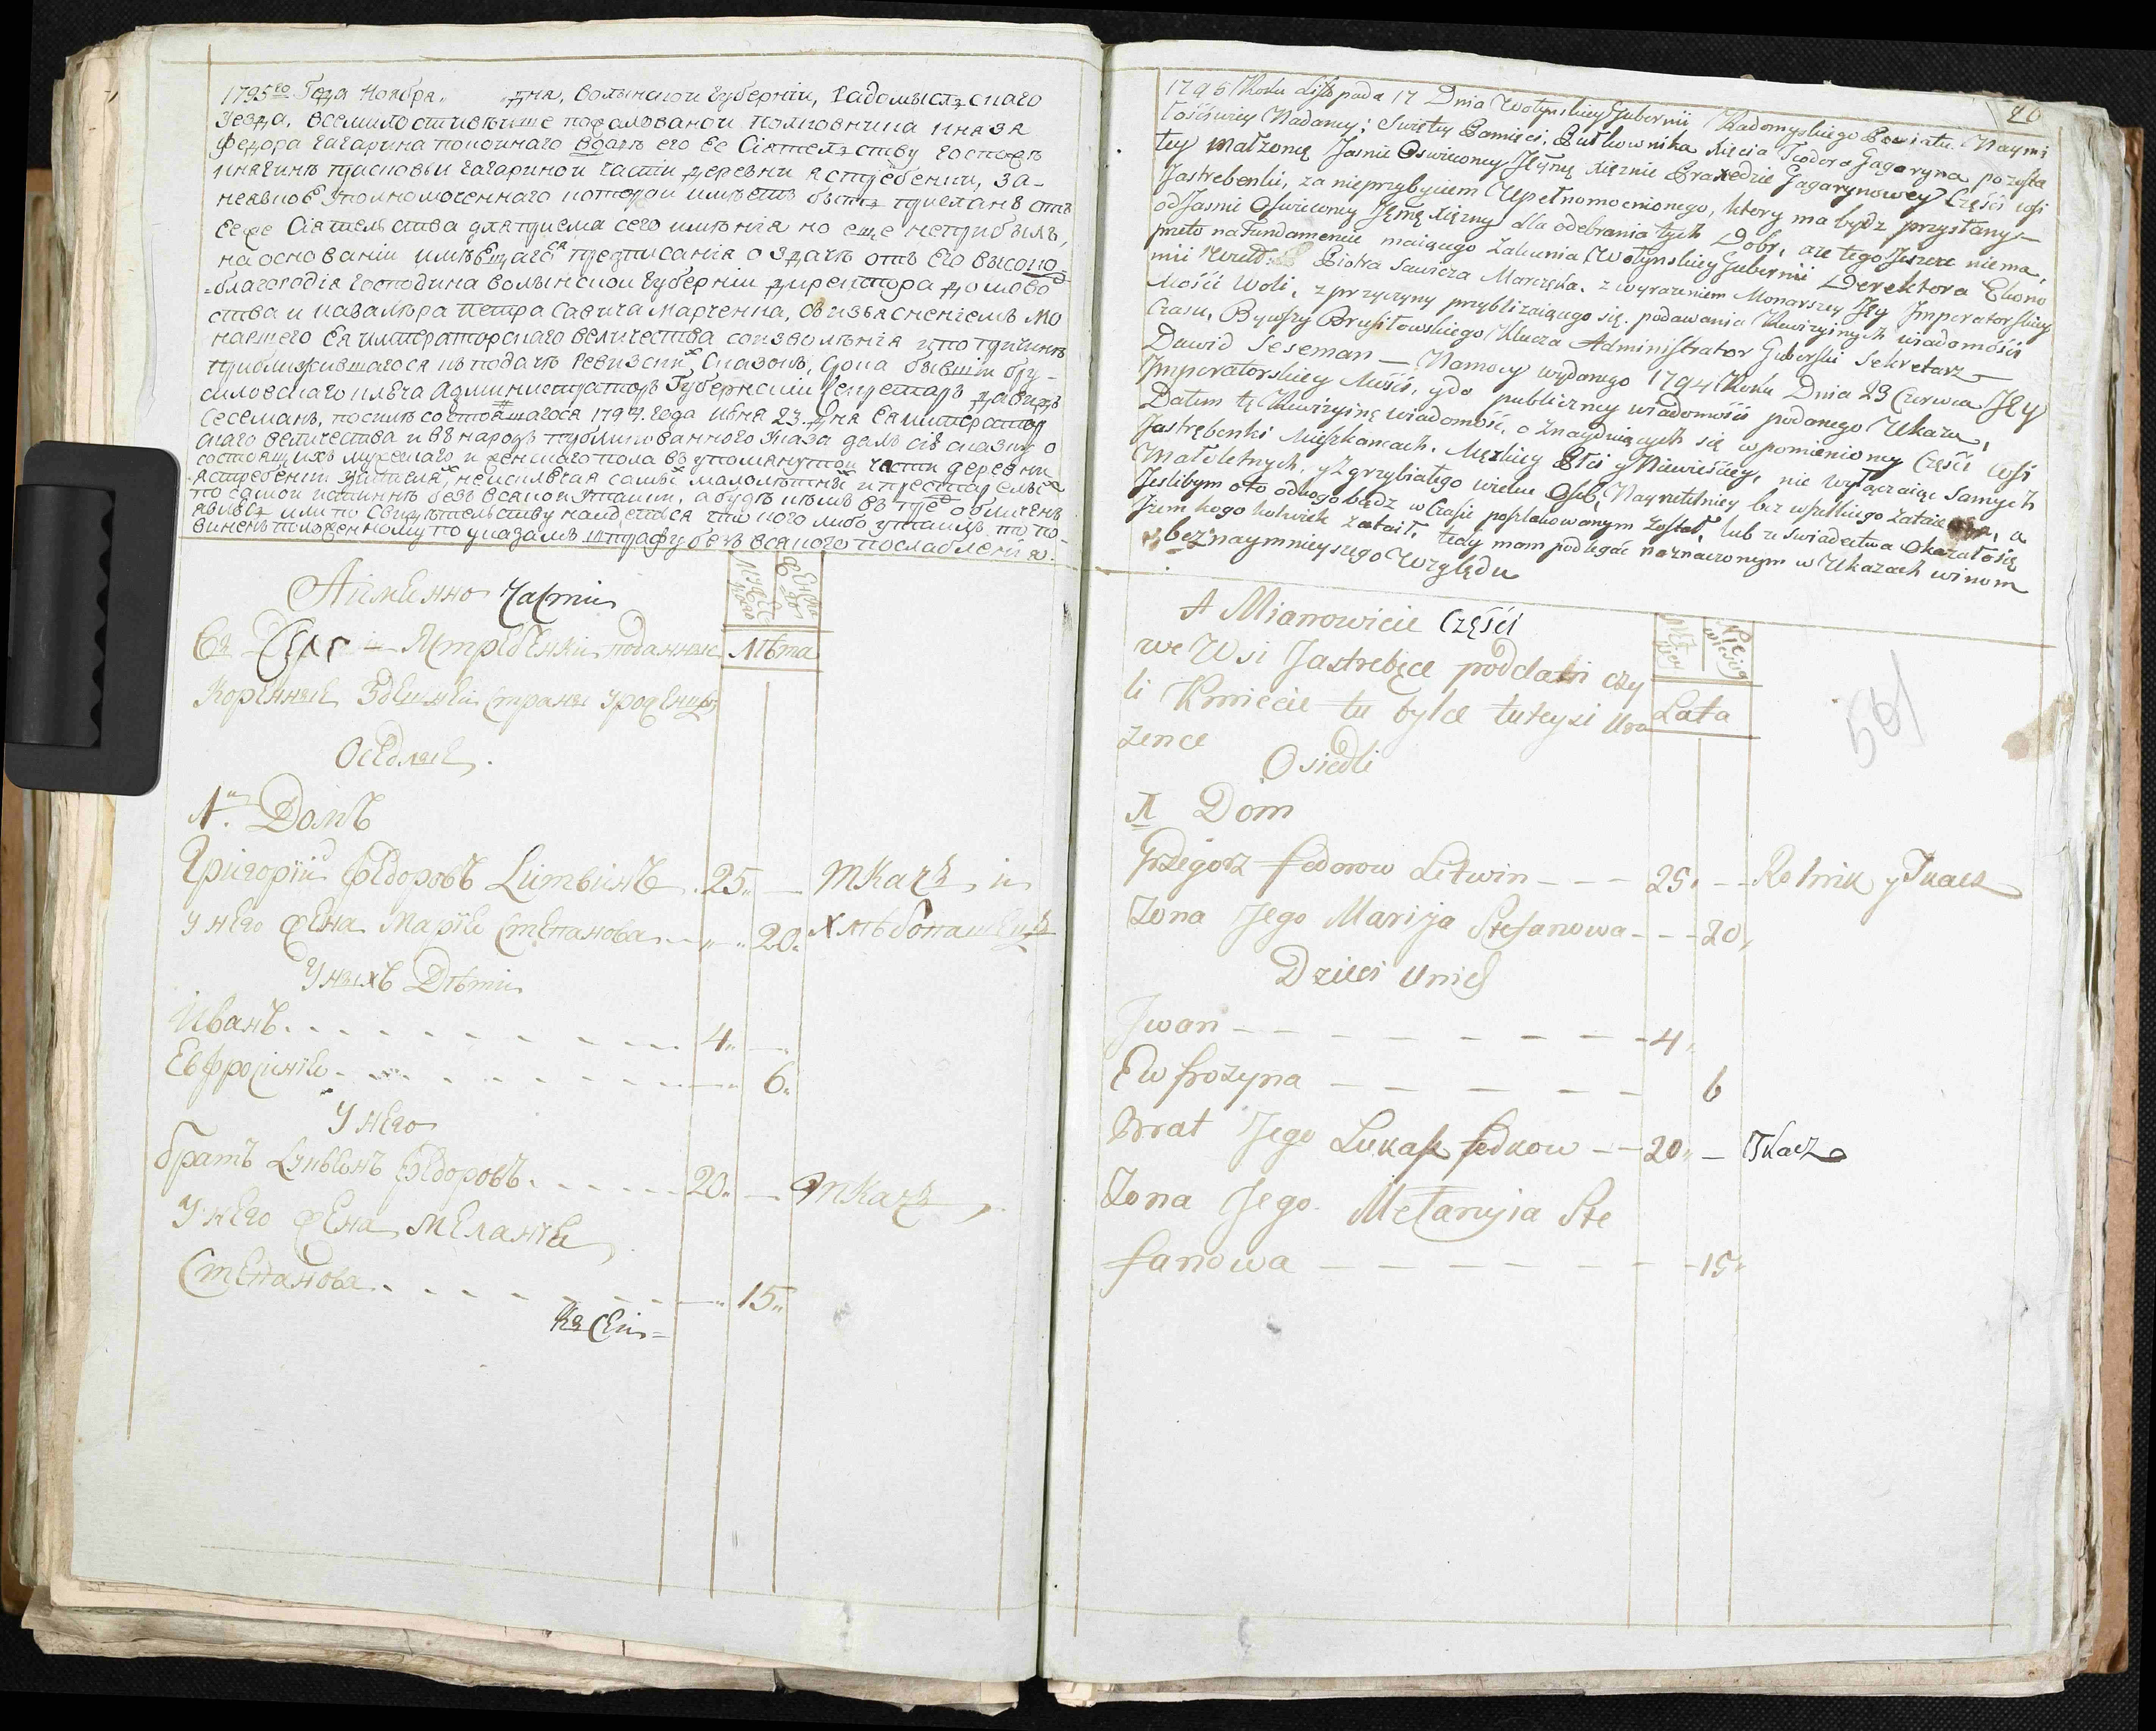 1795го Года Ноября „ „ дня, волынскои губернїи, Радомысльскаго
уезда, всемилостивѣише пожалованои полковника князя
Федора гагарина покоинаго вдовѣ его ее Сіятельству госпожѣ
княгинѣ прасковьи гагариной части деревни ястребенки, за
неявкою уполномоченнаго которои имѣетъ быть присланъ отъ
ееже Сіятельства для приема сего имѣнія но еще неприбылъ,
на основаніи имѣющагося предписанія о здачѣ отъ Его высоко
благородія господина волынскои губерніи директора домовод
ства и кавалера петра савича марченка, съ изъясненіемъ мо
наршего Ея императорскаго величества соизволенія и по причинѣ
приближившагося къ подачѣ ревизскихъ сказокъ срока бывшіи бру
силовскаго ключа администраторъ Губернскіи секретарь давидъ
сесеманъ, посилѣ состоявшагося 1794. года июня 23. дня Ея императорс
скаго величества и въ народъ публикованного указа далъ сію сказку о
состоящихъ мужескаго и женского пола въ упомянутой части деревни
ястребенки, неисключая самыхъ малолѣтныхъ и престарелыхъ
по самои истиннѣ безъ всякои утаики, а будѣ кѣмъ въ чѣ обличенъ
явлюсь или по свидѣтельству найдется что кого либо утаилъ то по-
виненъ положенному по указамъ штрафу безъ всякого послабленія.
Аименно Части
Въ Селе Ястребенки подданные
Лѣта
Коренные Здешней страны уроженцы
Оседлые
1й Домъ
Григорїй Федоровъ Литвинъ 25. — ткачъ и
у него жена Марїя Степанова — „ 20. хлѣбопашецъ
У нихъ Дѣти
Иванъ 4 „
Евфросинїя 6 „
У него
братъ Лукьянъ Федоровъ 20 „ — ткачъ
У него жена меланїя
Степанова 15 „
Ксени=
20
1795 Roku Listopada 17 Dnia Wołynskiey Gubernii Radomyskiego Powiatu Naymi
łościwiey Nadaney: Swiętey Pamięci, Pułkownika Xięcia Teodora Gagaryna pozosta
łey Małzonce Jasnie Oswieconey Jeymę xięznie Praxedzie Gagarynowey Części wsi
Jastrebenki, za nieprzybyciem Upełnomocnionego, ktory ma bydz przysłanym
od Jasnie Oswieconey Jeymę xięzny dla odebrania tych Dobr, aże tego Jeszcze niema,
przeto na Fundamencie maiącego zalecenia Wołynskiey Gubernii Derektora Ekono
mii Piotra Sawicza Marczęka, z wyrazeniem Monarszey Jey Imperatorskiey
Mości Woli, z przyczyny przyblizaiącego się podawania Rewizyinych wiadomości
Czasu, Bywszy Brusiłowskiego Klucza Administrator Guberski Sekretarz
Dawid Seseman — Namocy wydanego 1794 Roku Dnia 23 Czerwca Jey
Imperatorskiey Mości, y do publiczney wiadomości podanego Ukazu,
Datum tę Rewizyinę wiadomość, o znayduiących się w pomienioney Części wsi
Jastrębenki Mieszkancach, Męzkiey Płci y Niewieściey, nie wyłączaiąc samych
Małoletnych, y zgrzybiałego wieku Osob, Nayrzetelniey bez wszelkiego zataienia, a
Jeslibym oto odkogo bądz w Czasie poszlakowanym został, lub ze swiadectwa okazałosię
Jżem kogo kolwiek zataił, tedy mam podlegać naznaczonym w Ukazach winom
bez naymnieyszego Względu
A Mianowicie Części
we Wsi Jastrebęce poddani czy
li Kmiecie tu bylce tuteysi Uro
Lata
zence
Osiedli
1 Dom
Grzegorz Fedorow Litwin — — — 25 „ — — Rolnik y Tkacz
Zona Jego Marija Stefanowa — — — 20 „
Dzieci Unich
Jwan — — — — 4 „
Ewfrozyna — — — — 6
Brat Jego Lukasz Fedkow — — 20 „ — Tkacz
Zona Jego Mełanyia Ste
fanowa — — — — 15 „
561